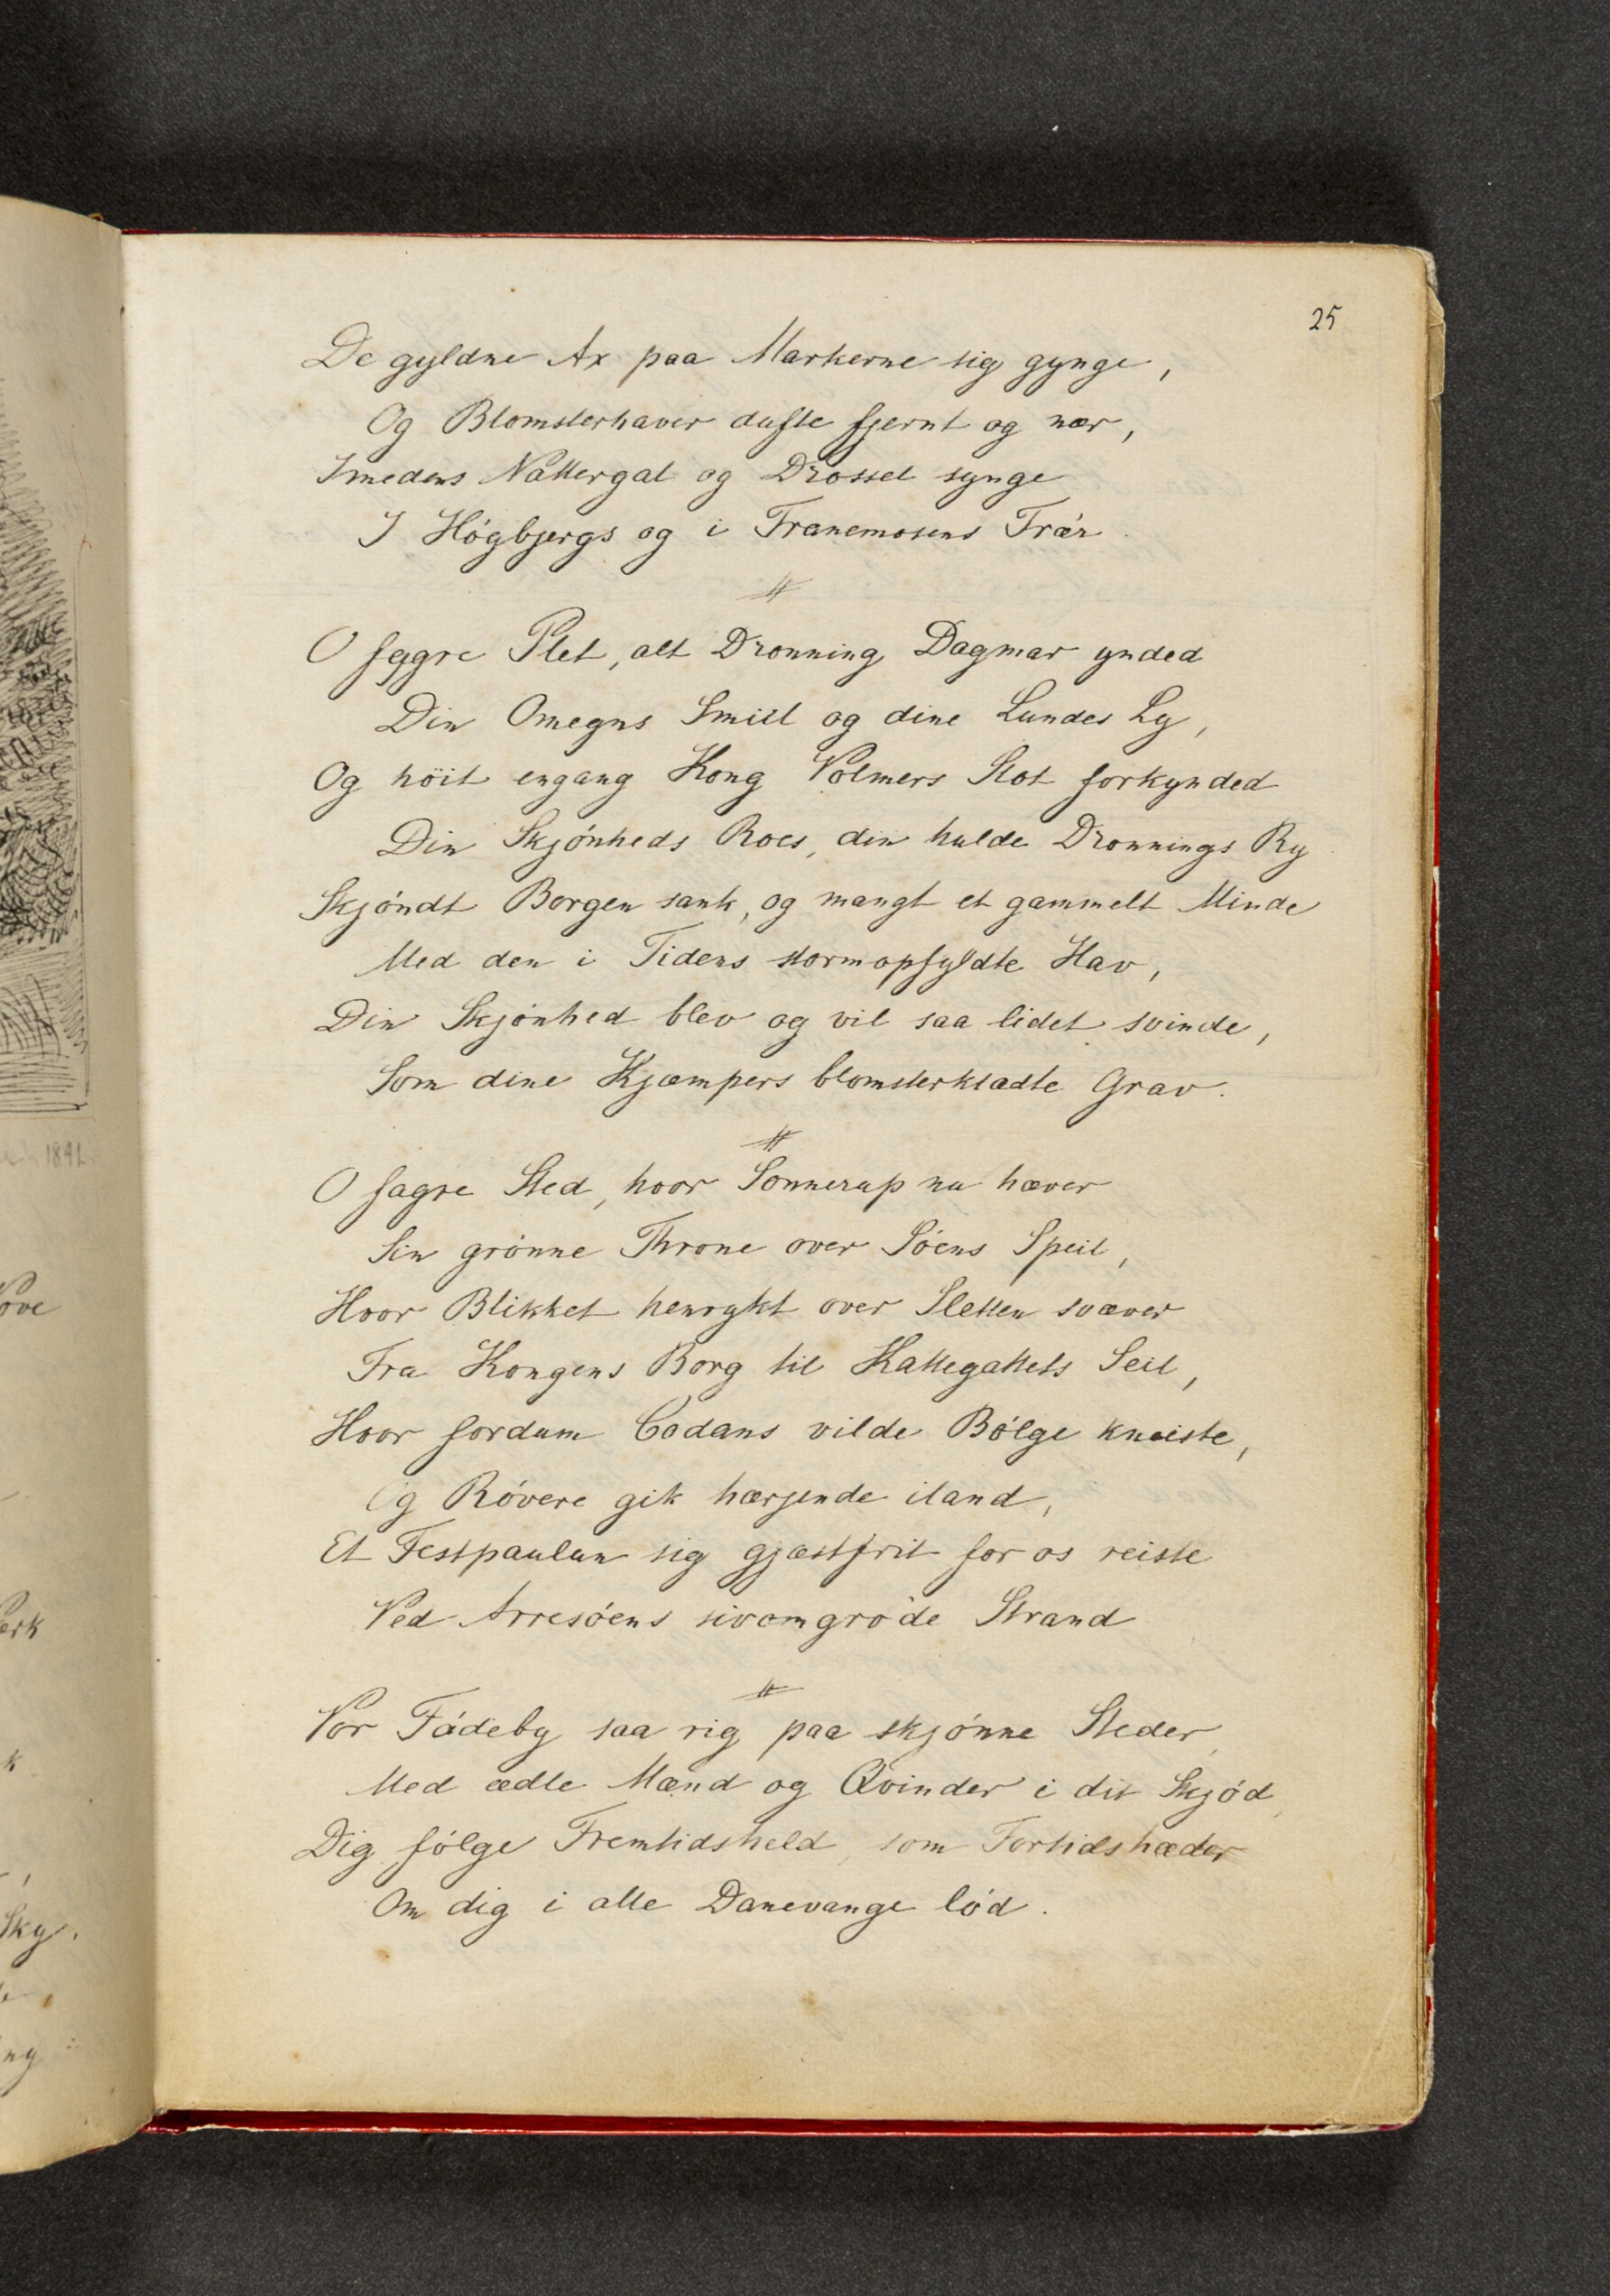 25
De gyldne Ax paa Markerne sig gynge,
Og Blomsterhaver dufte fjernt og nær,
Imedens Nattergal og Drossel synge
I Högbjergs og i Tranemosens Træ'r.
O fagre Plet, alt Dronning Dagmar ynded
Din Omegns Smiil og dine Lundes Ly,
Og höit engang Kong Volmers Slot forkynded
Din Skjónheds Roes, din hulde Dronnings Ry.
Skjóndt Borgen sank, og mangt et gammelt Minde
Med den i Tidens stormopfyldte Hav,
Din Skjónhed blev og vil saa lidet svinde,
Som dine Kjæmpers blomsterklædte Grav.
O fagre Sted, hvor Sonnerup nu hæver
Sin grónne Throne over Sóens Speil,
Hvor Blikket henrykt over Sletten svæver
Fra Kongens Borg til Kattegattets Seil,
Hvor fordum Codans vilde Bólge kneiste,
Og Róvere gik hærjende iland,
Et Festpaulun sig gjæstfrit for os reiste
Ved Arresóens sivomgro'de Strand
Vor Fódeby saa rig paa skjónne Steder,
Med ædle Mænd og Qvinder i dit Skjód,
Dig fólge Fremtidsheld, som Fortidshæder
Om dig i alle Danevange lód.
1891
ove
erk
k
Sky.
ng